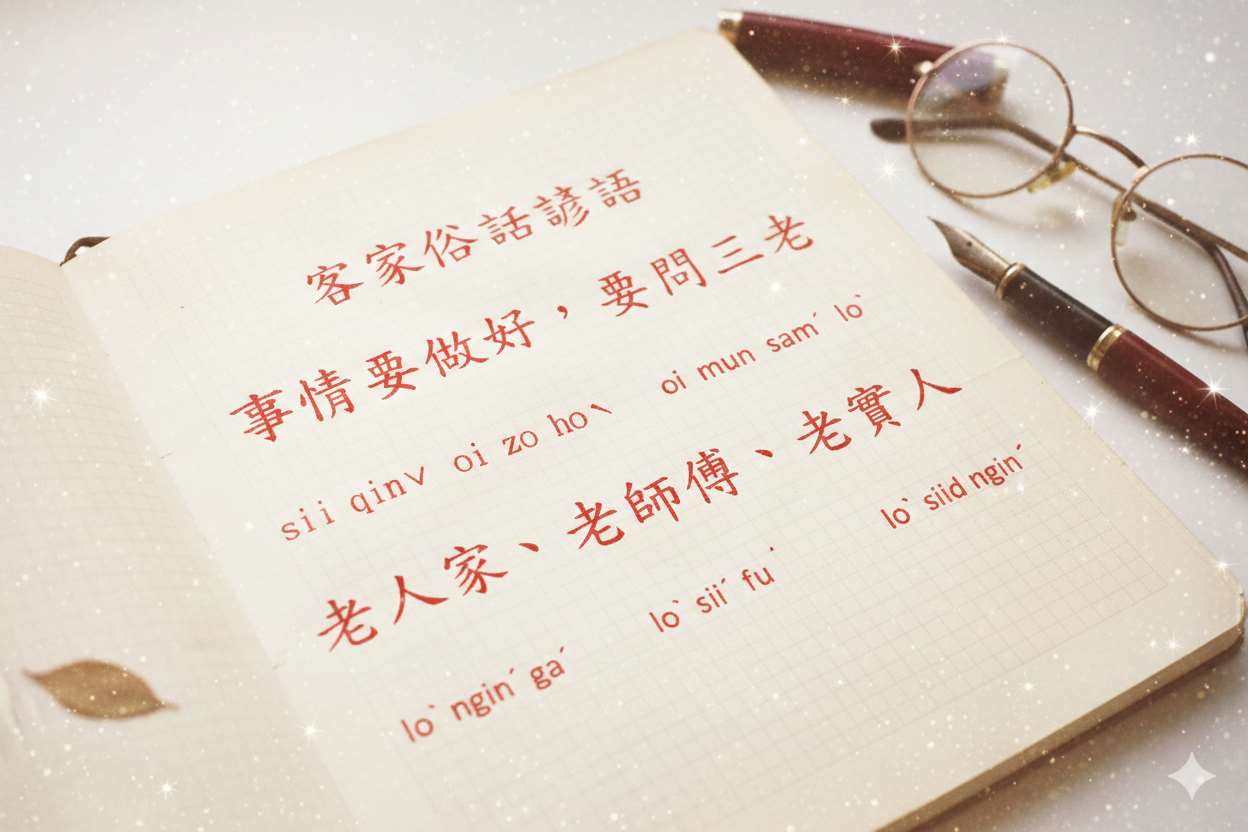 客家俗話諺語
事情要做好，要問三老
sii qinˇ oi zo hoˋ oi mun samˊ loˋ
老人家、老師傅、老實人
loˋ nginˊ gaˊ loˋ siiˊ fuˊ loˋ siid nginˊ